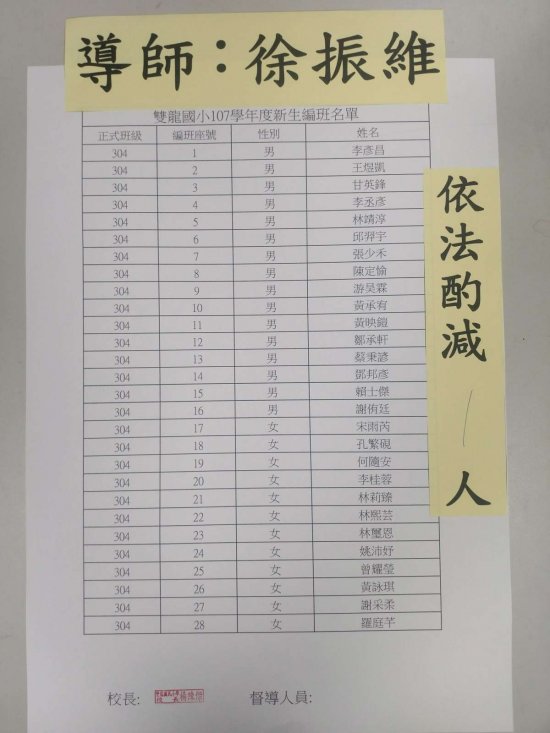 導師：徐振維
雙龍國小107學年度新生編班名單
正式班級 編班座號 性別 姓名
304 1 男 李彥昌
304 2 男 王煜凱
304 3 男 甘英鋒
304 4 男 李丞彥
304 5 男 林靖淳
304 6 男 邱羿宇
304 7 男 張少禾
304 8 男 陳定愉
304 9 男 游昊霖
304 10 男 黃承宥
304 11 男 黃映鎧
304 12 男 鄒承軒
304 13 男 蔡秉諺
304 14 男 鄧邦彥
304 15 男 賴士傑
304 16 男 謝侑廷
304 17 女 宋雨芮
304 18 女 孔繁硯
304 19 女 何隨安
304 20 女 李桂蓉
304 21 女 林莉臻
304 22 女 林熙芸
304 23 女 林璽恩
304 24 女 姚沛妤
304 25 女 曾耀瑩
304 26 女 黃詠琪
304 27 女 謝采柔
304 28 女 羅庭芊
依法酌減 1 人
校長: 督導人員: